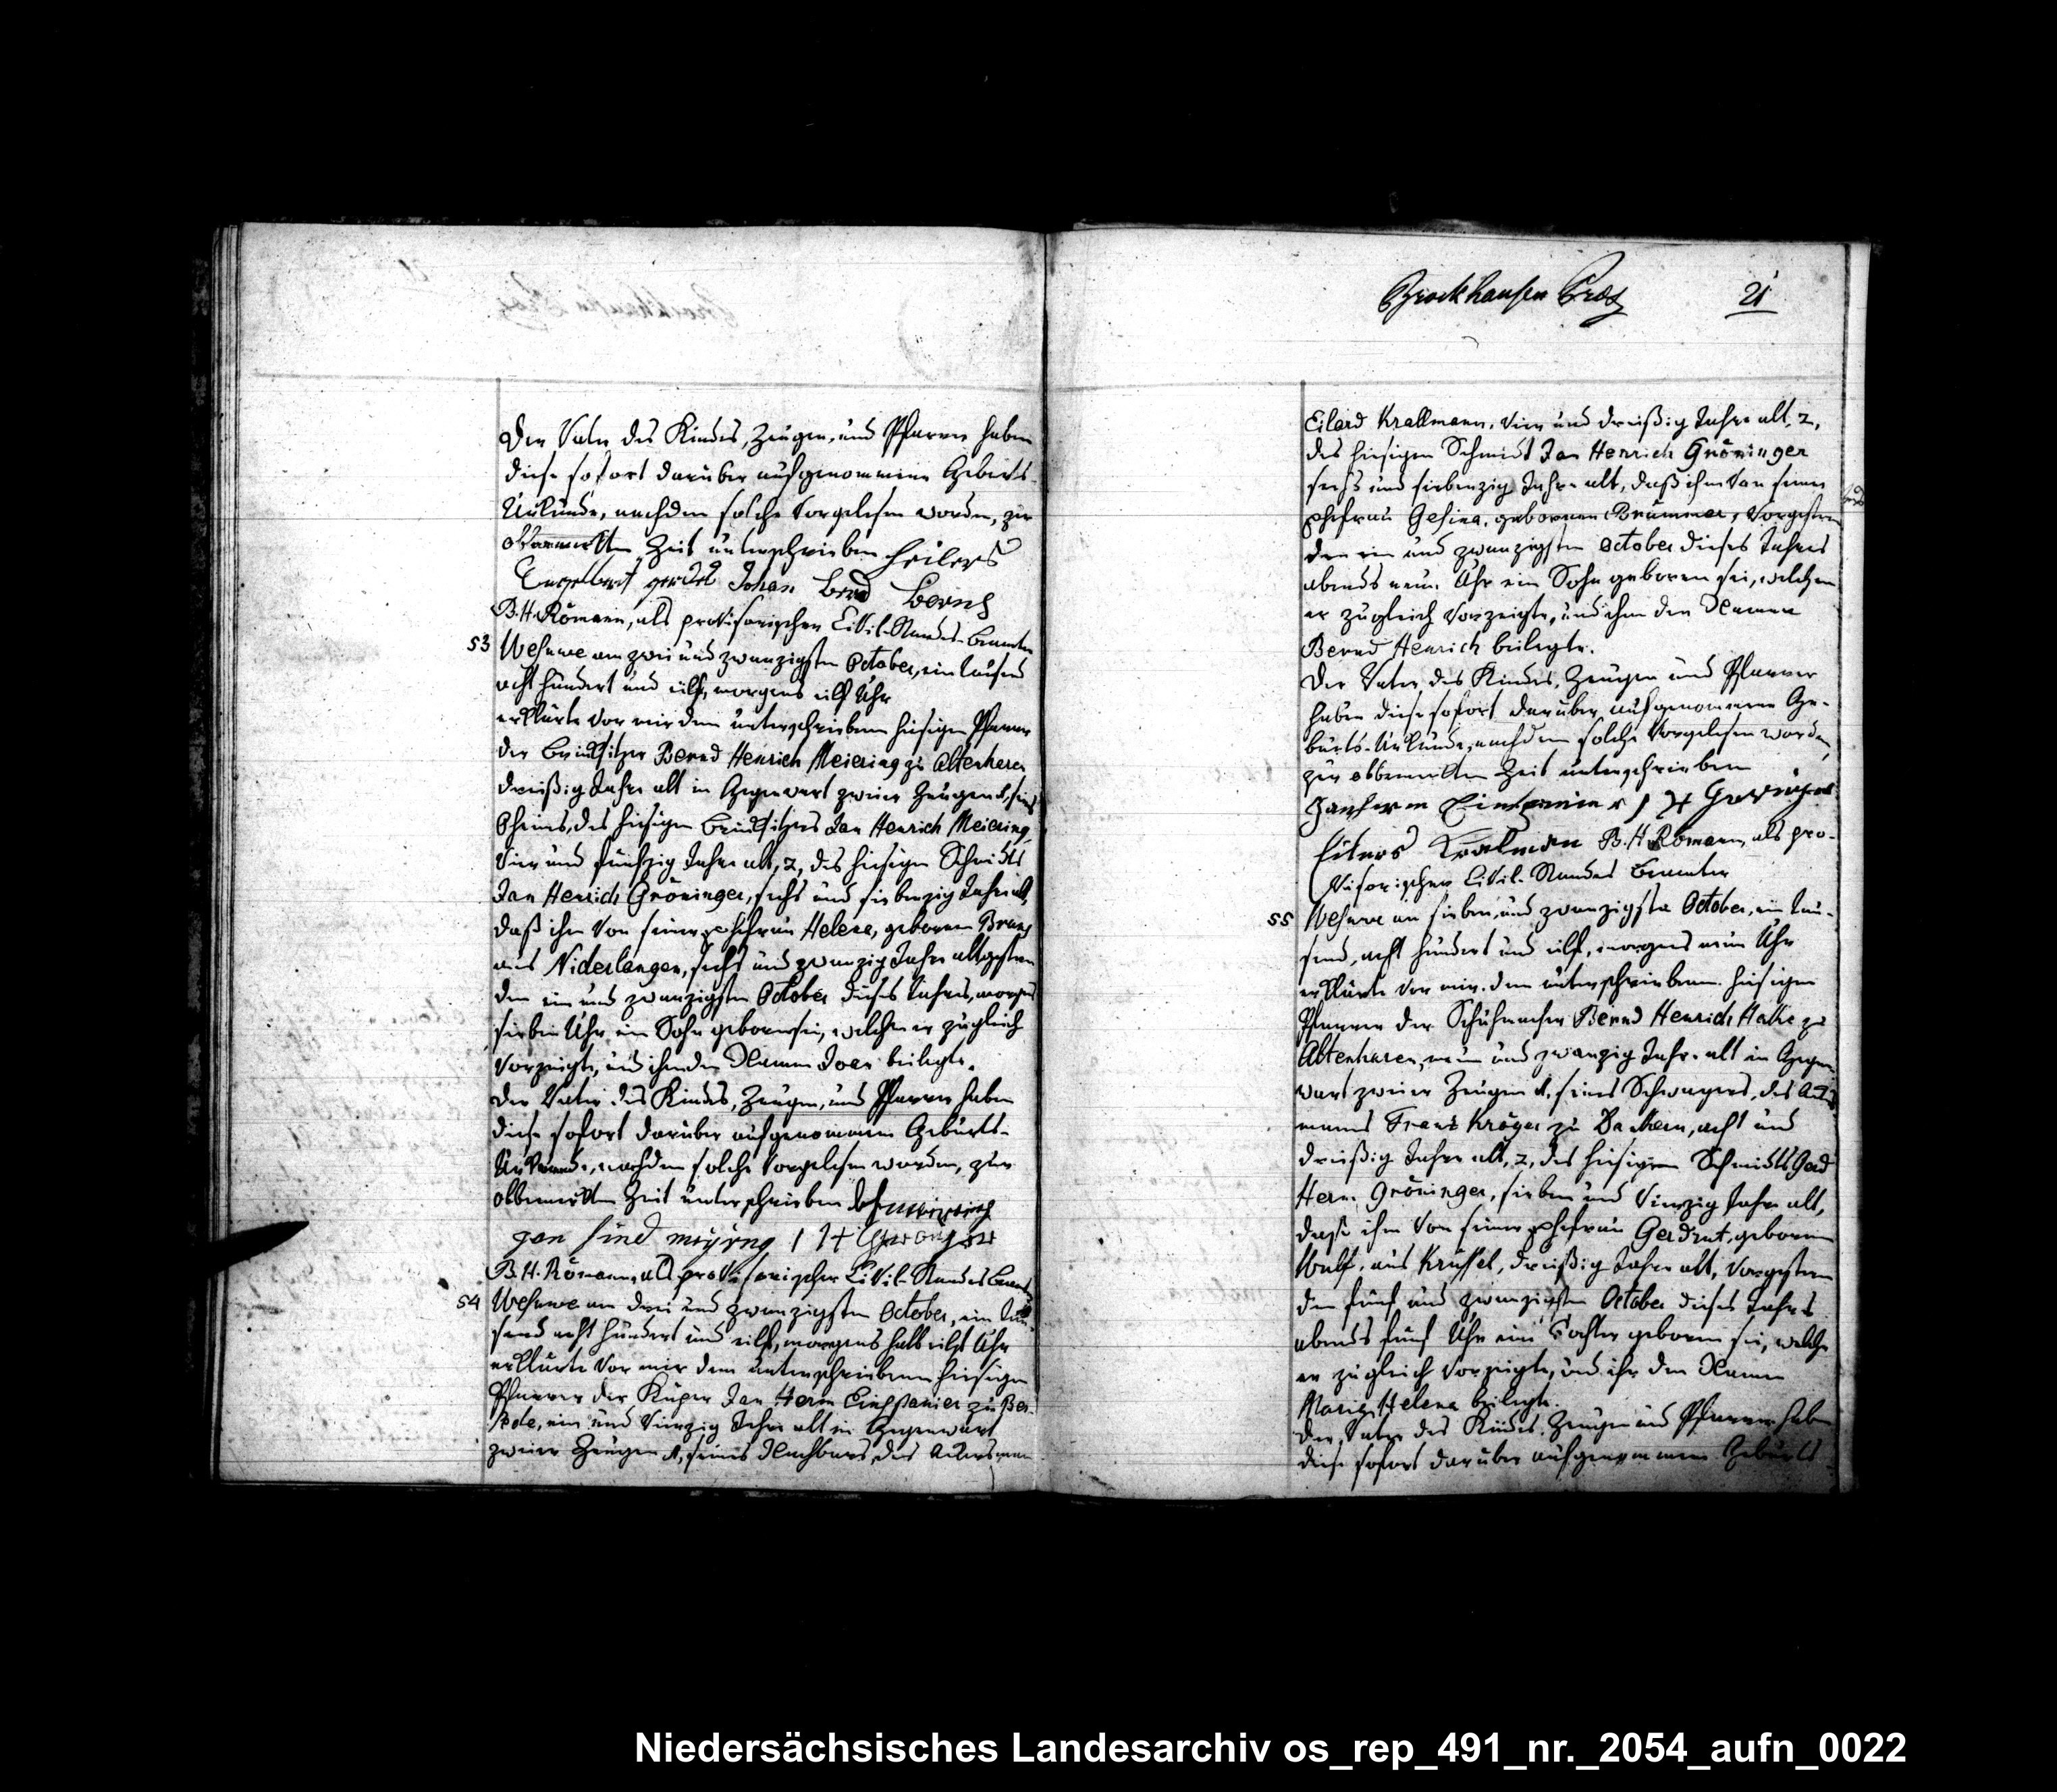 Der Vater des Kindes, Zeugen, und Pfarrer haben
diese sofort darüber aufgenommene Geburts-
Urkunde, nachdem solche vorgelesen worden, zur
obbemerkten Zeit unterschrieben Heilers
Engelbert gerdes Johan Bernd Berens
B. H. Römann, als provisorischer Civil-Standes-Beamter
53 Wesuwe am zwei und zwanzigsten October, ein tausend
acht hundert und eilf, morgens eilf Uhr
erklärte vor mir dem unterschriebenen hiesigen Pfarrer
der Brinksitzer Bernd Henrich Meiering zu Altenharen
dreißig Jahre alt in Gegenwart zweier Zeugen 1, seines
Oheims, des hiesigen Brinksitzers Jan Henrich Meiering,
vier und fünfzig Jahre alt, 2, des hiesigen Schmidts
Jan Henrich Gröninger, sechs und siebenzig Jahre alt,
daß ihm von seiner Ehefrau Helena, gebornen Bruns
aus Niderlangen, sechs und zwanzig Jahre alt gestern
den ein und zwanzigsten October dieses Jahres, morgens
sieben Uhr ein Sohn geboren sei, welchen er zugleich
vorzeigte, und ihm den Namen Joan beilegte.
Der Vater des Kindes, Zeugen, und Pfarrer haben
diese sofort darüber aufgenommene Geburts-
Urkunde, nachdem solche vorgelesen worden, zur
obbemerkten Zeit unterschrieben
jan hind meyrng J H
B. H. Römann, als provisorischer Civil-Standes Beamter
54 Wesuwe am drei und zwanzigsten October, ein tau-
send acht hundert und eilf, morgens halb eilf Uhr
erklärte vor mir dem unterschriebenen hiesigen
Pfarrer der Küper Jan Herm Einspanier zu Ber-
sede, ein und vierzig Jahre alt in Gegenwart
zweier Zeugen 1, seines Nachbars, des Ackersmann
Brockhausen Präs 21
Eilard Krallmann, vier und dreißig Jahre alt, 2,
des hiesigen Schmidt Jan Henrich Gröninger
sechs und siebenzig Jahre alt, daß ihm von seiner
Ehefrau Gesina, gebornen Brümmer, vorgestern
den ein und zwanzigsten October dieses Jahres
abends neun Uhr ein Sohn geboren sei, welchen
er zugleich vorzeigte, und ihm den Namen
Bernd Henrich beilegte.
Der Vater des Kindes, Zeugen und Pfarrer
haben diese sofort darüber aufgenommene Ge-
burts-Urkunde, nachdem solche vorgelesen worden
zur obbemerkten Zeit unterschrieben
Janherm Einspanier J H
Eilers Kralman B. H. Römann, als pro-
visorischer Civil-Standes Beamter
55 Wesuwe am sieben und zwanzigsten October, ein tau-
send, acht hundert und eilf, morgens neun Uhr
erklärte vor mir dem unterschriebenen hiesigen
Pfarrer der Schuhmacher Bernd Henrich Halke zu
Altenharen, neun und zwanzig Jahre alt in Gegen-
wart zweier Zeugen 1, seines Schwagers, des Ackers-
manns Franz Kröger zu Dankern, acht und
dreißig Jahre alt, 2, des hiesigen Schmidts Gerd
Herm Gröninger, sieben und vierzig Jahre alt,
daß ihm von seiner Ehefrau Gerdrut, gebornen
Wulf, aus Krüssel, dreißig Jahre alt, vorgestern
den fünf und zwanzigsten October dieses Jahrs
abends fünf Uhr eine Tochter geboren sei, welche
er zugleich vorzeigte, und ihr den Namen
Maria Helena beilegte.
Der Vater des Kindes, Zeugen und Pfarrer haben
diese sofort darüber aufgenommene Geburts-
Niedersächsisches Landesarchiv os_rep_491_nr._2054_aufn_0022